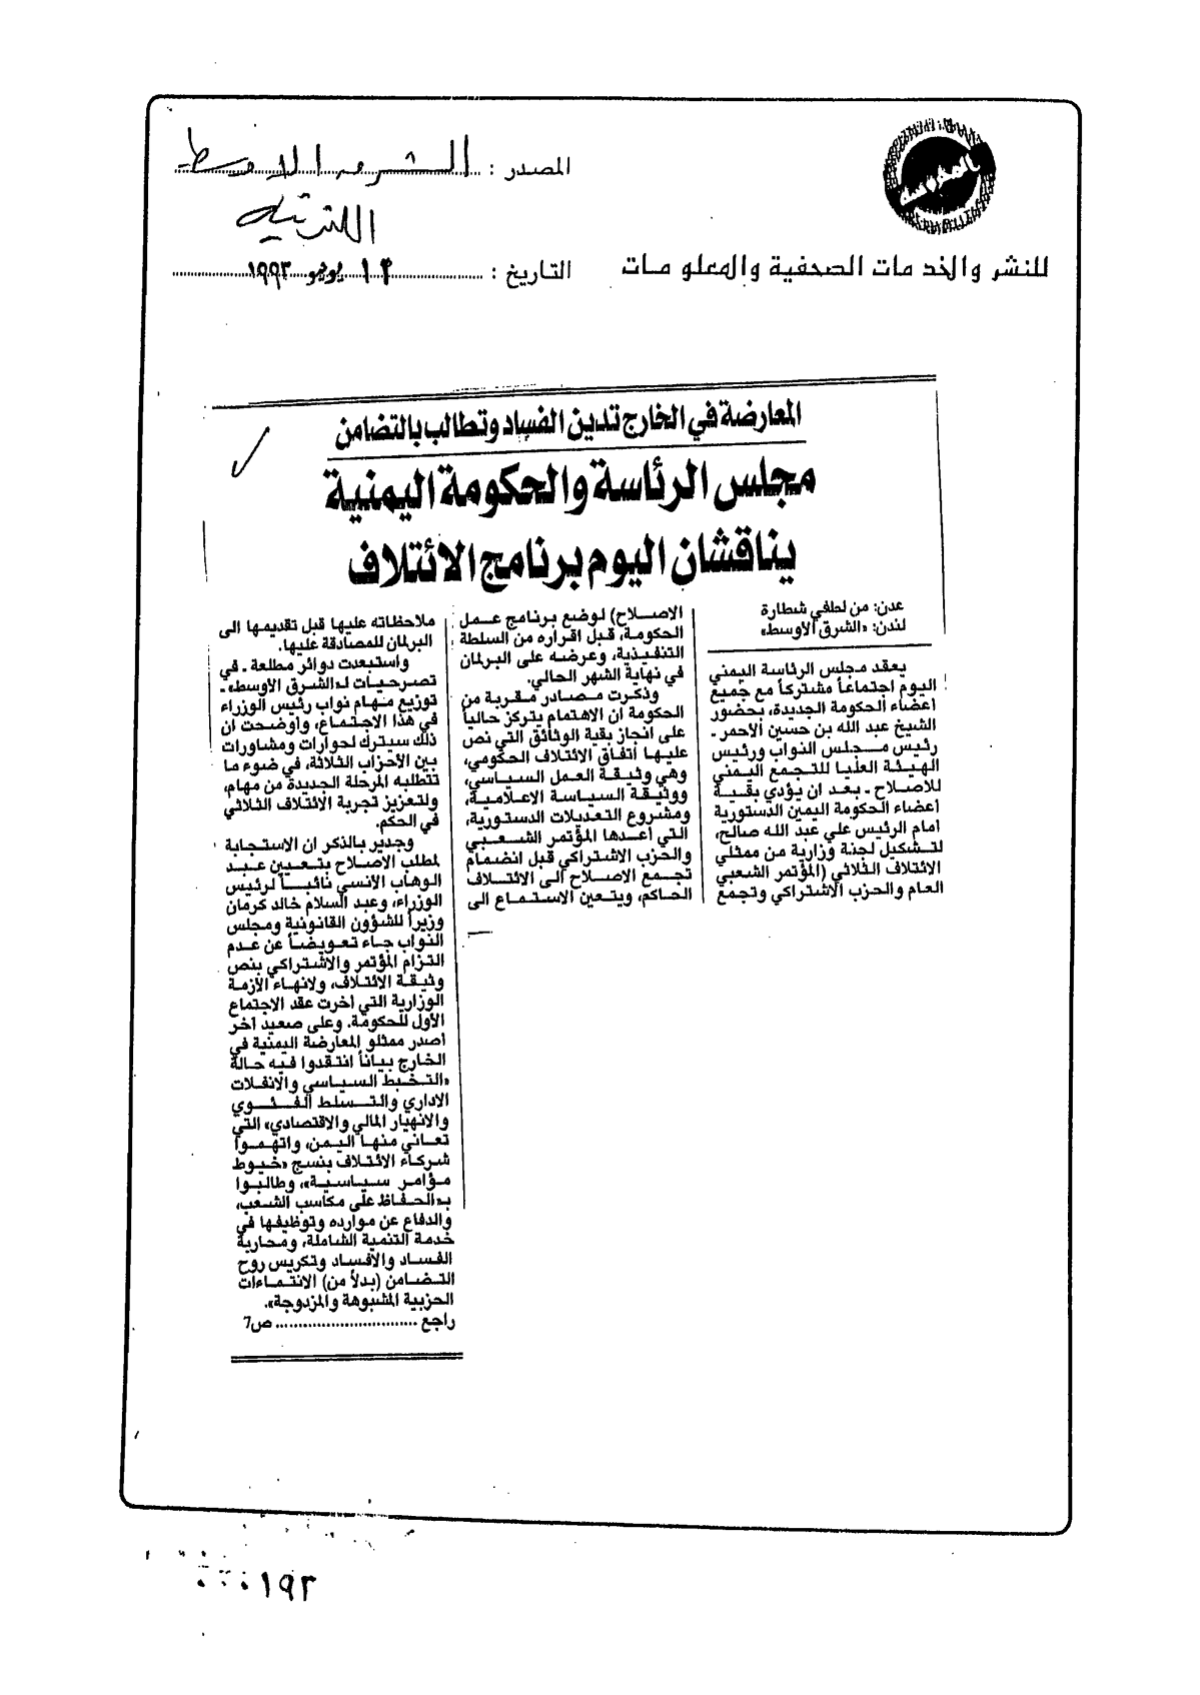 المصدر : الشرق الاوسط
اللندنية
للنشر والخدمات الصحفية والمعلومات
التاريخ : ١٣ يونيو ١٩٩٣
المعارضة في الخارج تدين الفساد وتطالب بالتضامن
مجلس الرئاسة والحكومة اليمنية
يناقشان اليوم برنامج الائتلاف
عدن: من لطفي شطارة
لندن: «الشرق الأوسط»
يعقد مجلس الرئاسة اليمني
اليوم اجتماعاً مشتركاً مع جميع
أعضاء الحكومة الجديدة، بحضور
الشيخ عبد الله بن حسين الأحمر ـ
رئيس مجلس النواب ورئيس
الهيئة العليا للتجمع اليمني
للاصلاح ـ بعد ان يؤدي بقية
اعضاء الحكومة اليمين الدستورية
أمام الرئيس علي عبد الله صالح،
لتشكيل لجنة وزارية من ممثلي
الائتلاف الثلاثي (المؤتمر الشعبي
العام والحزب الاشتراكي وتجمع
الاصلاح) لوضع برنامج عمل
الحكومة، قبل اقراره من السلطة
التنفيذية، وعرضه على البرلمان
في نهاية الشهر الحالي.
وذكرت مصادر مقربة من
الحكومة ان الاهتمام يتركز حالياً
على انجاز بقية الوثائق التي نص
عليها اتفاق الائتلاف الحكومي،
وهي وثيقة العمل السياسي،
ووثيقة السياسة الاعلامية،
ومشروع التعديلات الدستورية،
التي أعدها المؤتمر الشعبي
والحزب الاشتراكي قبل انضمام
تجمع الاصلاح الى الائتلاف
الحاكم، ويتعين الاستماع الى
ملاحظاته عليها قبل تقديمها الى
البرلمان للمصادقة عليها.
واستبعدت دوائر مطلعة ـ في
تصرحيات لـ«الشرق الأوسط» ـ
توزيع مهام نواب رئيس الوزراء
في هذا الاجتماع، واوضحت ان
ذلك سيترك لحوارات ومشاورات
بين الأحزاب الثلاثة، في ضوء ما
تتطلبه المرحلة الجديدة من مهام،
ولتعزيز تجربة الائتلاف الثلاثي
في الحكم.
وجدير بالذكر ان الاستجابة
لمطلب الاصلاح بتعيين عبد
الوهاب الآنسي نائباً لرئيس
الوزراء، وعبد السلام خالد كرمان
وزيراً للشؤون القانونية ومجلس
النواب جاء تعويضاً عن عدم
التزام المؤتمر والاشتراكي بنص
وثيقة الائتلاف، ولانهاء الأزمة
الوزارية التي اخرت عقد الاجتماع
الأول للحكومة. وعلى صعيد آخر
أصدر ممثلو المعارضة اليمنية في
الخارج بياناً انتقدوا فيه حالة
«التخبط السياسي والانفلات
الاداري والتسلط الفئوي
والانهيار المالي والاقتصادي» التي
تعاني منها اليمن، واتهموا
شركاء الائتلاف بنسج «خيوط
مؤامر سياسية»، وطالبوا
بـ«الحفاظ على مكاسب الشعب،
والدفاع عن موارده وتوظيفها في
خدمة التنمية الشاملة، ومحاربة
الفساد والافساد وتكريس روح
التضامن (بدلاً من) الانتماءات
الحزبية المشبوهة والمزدوجة».
راجع .............................. ص7
١٩٣